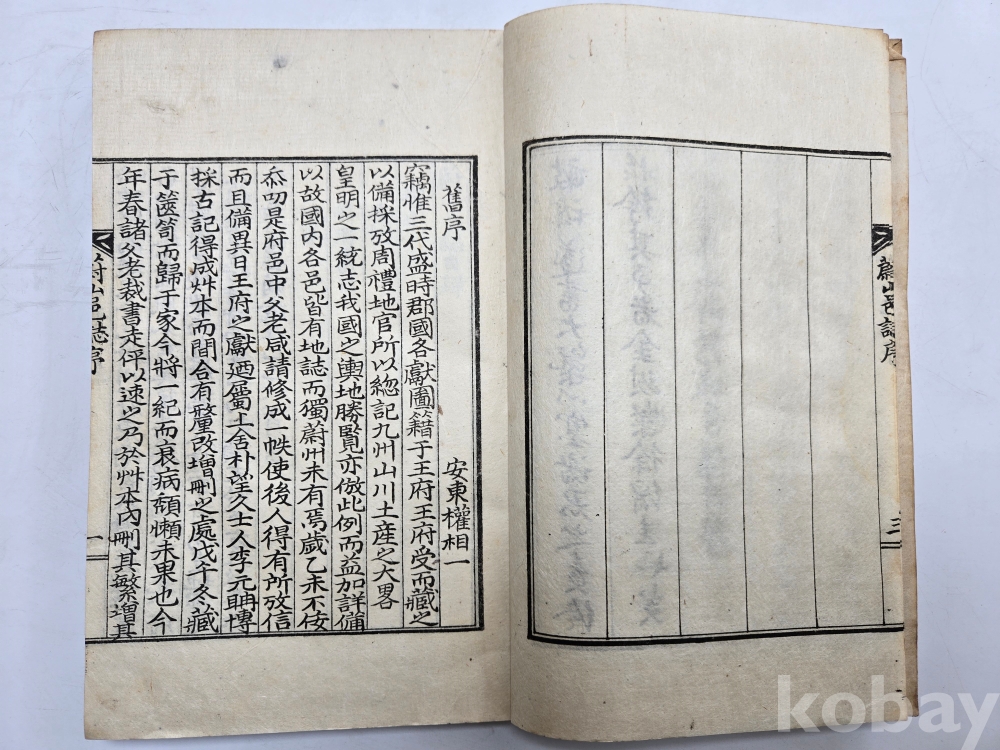 蔚山邑誌序
三
舊序
安東權相一
竊惟三代盛時郡國各獻圖籍于王府王府受而藏之
以備採攷周禮地官所以緫記九州山川土産之大畧
皇明之一統志我國之輿地勝覧亦倣此例而益加詳備
以故國内各邑皆有地誌而獨蔚州未有焉歲乙未不侫
忝叨是府邑中父老咸請修成一帙使後人得有所攷信
而且備異日王府之獻廼屬上舍朴望久士人李元聃博
採古記得成艸本而間合有釐改増刪之處戊午冬藏
于篋笥而歸于家今將一紀而衰病頹懶未果也今
年春諸父老裁書走伻以速之乃於艸本內刪其繁増其
蔚山邑誌序
一
kobay